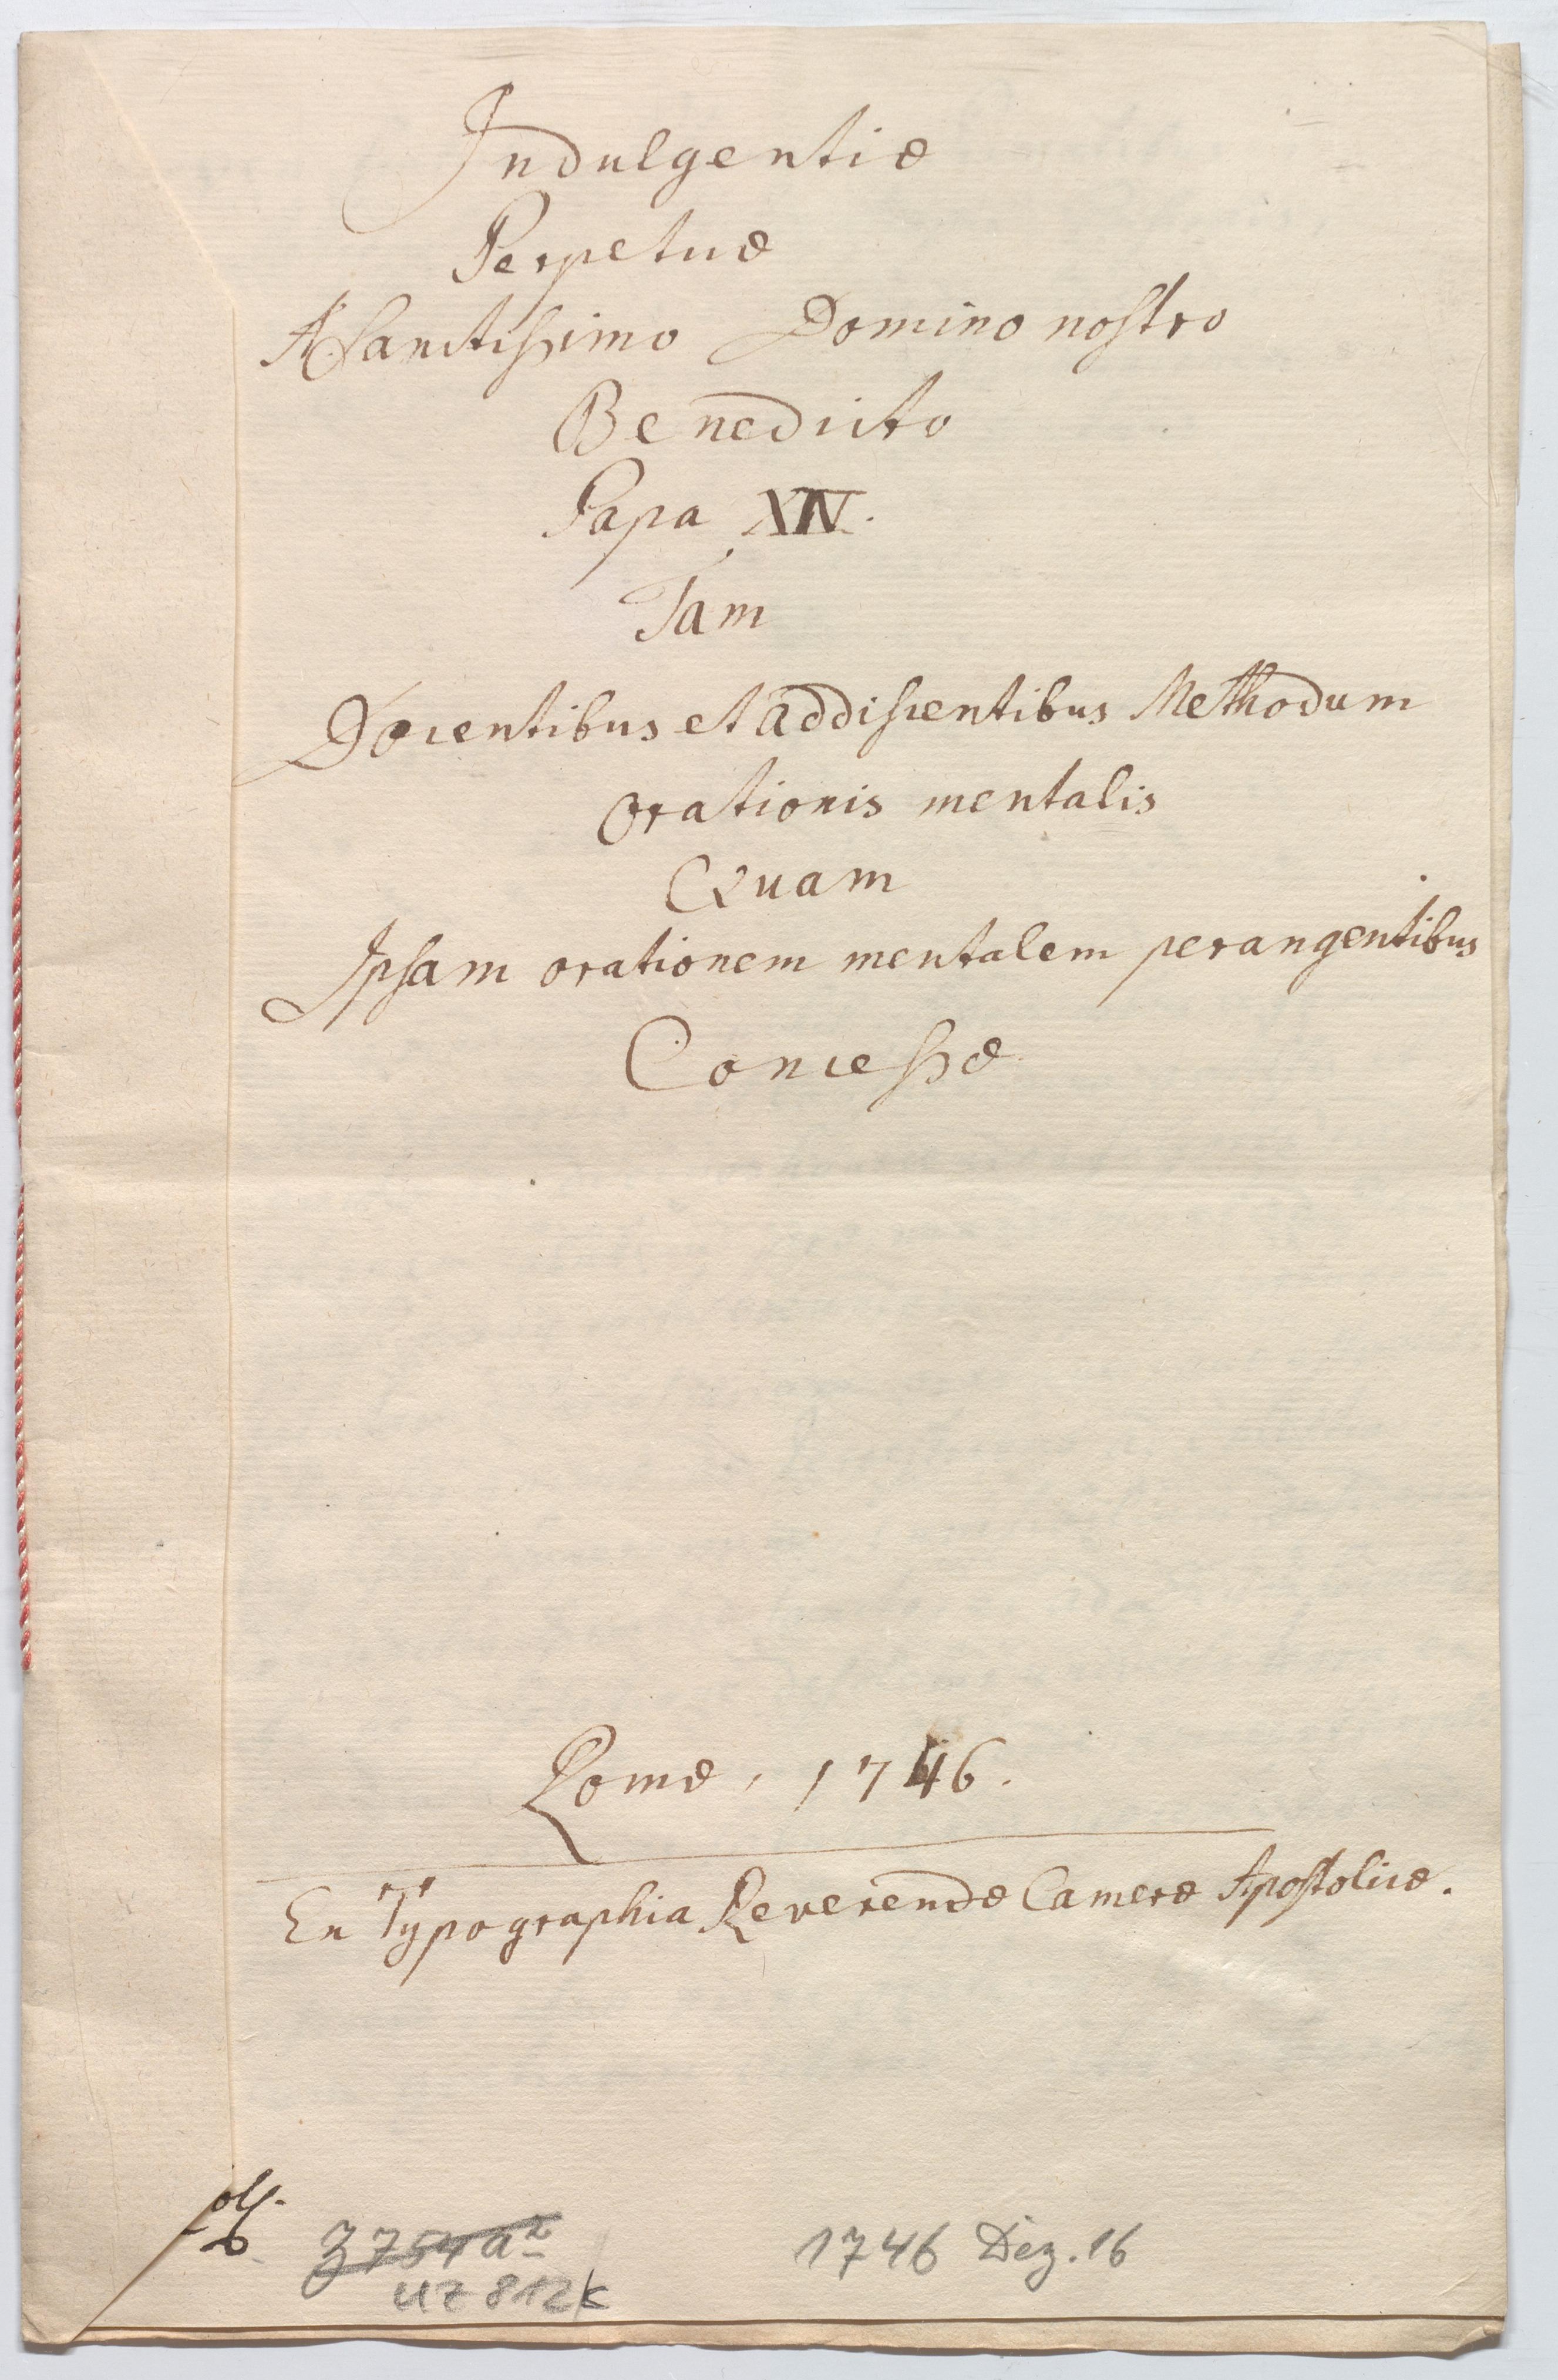 Indulgentiæ
Perpetuæ
A Sanctissimo Domino nostro
Benedicto
Papa XIV.
Tam
Docentibus et addiscentibus Methodum
orationis mentalis
Quam
Ipsam orationem mentalem perangentibus
Concessæ
Romæ, 1746.
En Typographia Reverendæ Cameræ Apostolicæ.
3754 a²
UZ 812k
1746 Dez. 16